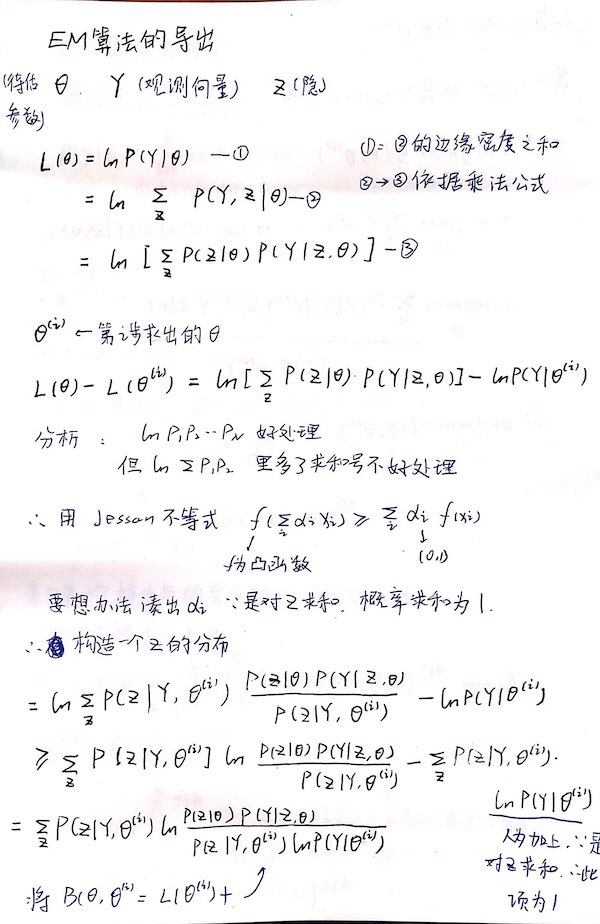 EM算法的导出
(待估 θ. Y (观测向量) Z (隐)
参数)
L(θ) = ln P(Y|θ) —①
= ln Σ_z P(Y, z|θ) —②
= ln [Σ_z P(z|θ) P(Y|z,θ)] —③
①=②的边缘密度之和
②→③依据乘法公式
θ^(i) ← 第i步求出的θ
L(θ) - L(θ^(i)) = ln[Σ_z P(z|θ)·P(Y|z,θ)] - lnP(Y|θ^(i))
分析: ln P₁P₂…P_N 好处理
但 ln ΣP₁P₂ 里多了求和号不好处理
∴ 用 Jessan 不等式 f(Σ_i αi xi) ≥ Σ_i αi f(xi)
f为凸函数 (0,1)
要想办法凑出αi ∵是对Z求和. 概率求和为1.
∴ 构造一个Z的分布
= ln Σ_z P(z|Y,θ^(i)) P(z|θ)P(Y|z,θ) / P(z|Y,θ^(i)) - lnP(Y|θ^(i))
≥ Σ_z P[z|Y,θ^(i)] ln P(z|θ)P(Y|z,θ) / P(z|Y,θ^(i)) - Σ_z P(z|Y,θ^(i)).
lnP(Y|θ^(i))
= Σ_z P(z|Y,θ^(i)) ln P(z|θ)P(Y|z,θ) / P(z|Y,θ^(i)) lnP(Y|θ^(i))
伪加上. ∵是
对Z求和. ∴此
项为1
将 B(θ,θ^(i) = L(θ^(i)) +